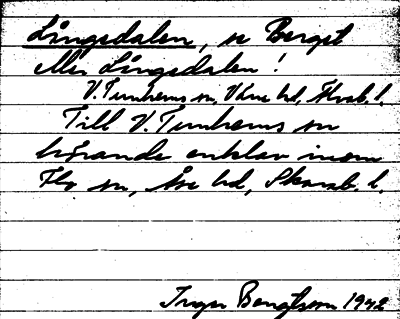 Långedalen, se Berget
eller Långedalen!
V. Tunhems sn, Väne hd, Skarab. l.
Till V. Tunhems sn
hörande enklav inom
Flo sn, Åse hd, Skarab. l.
Inger Bengtsson 1942